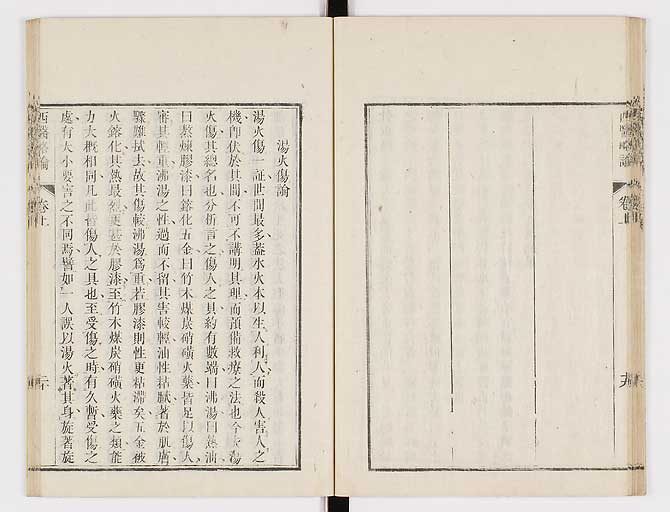 湯火傷論
湯火傷一証世間最多蓋水火本以生人利人而殺人害人之
機卽伏於其間不可不講明其理而預備救療之法也今以湯
火傷其總名也分析言之傷人之具約有數端曰沸湯曰熱油
曰熬煉膠漆曰鎔化五金曰竹木煤炭硝磺火藥皆足以傷人
審其輕重沸湯之性過而不留其害較輕油性粘膩著於肌膚
驟難拭去故其傷較沸湯爲重若膠漆則性更粘滯矣五金被
火鎔化其熱最烈更甚於膠漆至竹木煤炭硝磺火藥之類能
力大概相同凡此皆傷人之具也至受傷之時有久暫受傷之
處有大小要害之不同焉譬如一人誤以湯火著其身旋著旋
西醫略論
卷上
西醫略論
卷上